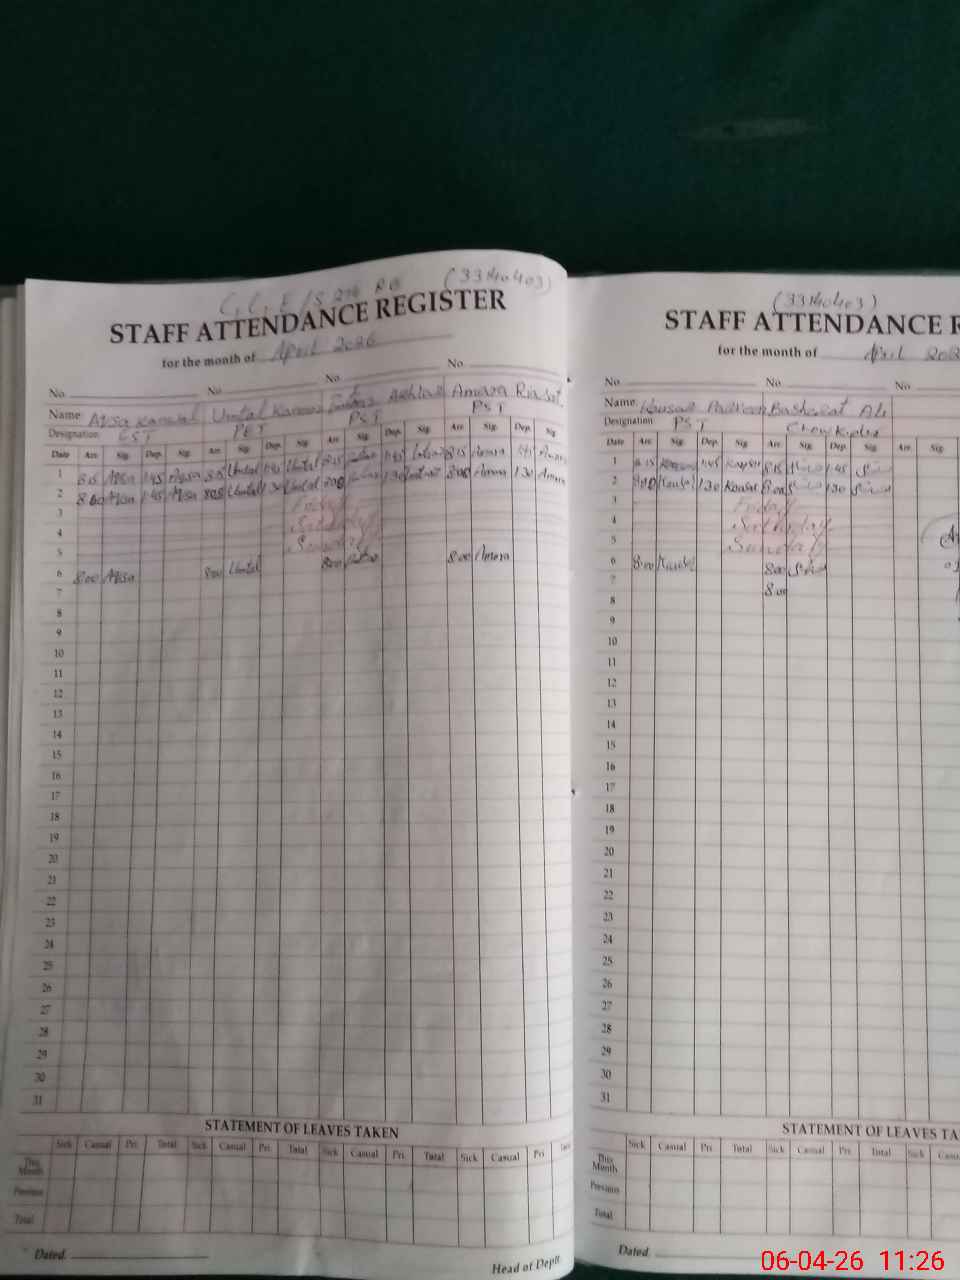 (33140403)
STAFF ATTENDANCE REGISTER
for the month of April 2026
No. No. No. No.
Name: Misa Kanwal Amara Riasat
Designation PET PST PST
Date Arr. Sig. Dep. Sig. Arr. Sig. Dep. Sig. Arr. Sig. Dep. Sig. Arr. Sig. Dep. Sig.
1 8:15 Misa 1:45 Misa 8:15 1:45 8:15 1:45 8:15 Amara 1:45 Amara
2 8:00 Misa 1:45 Misa 8:05 1:30 8:00 1:30 8:00 Amara 1:30 Amara
3 Friday
4 Saturday
5 Sunday
6 8:00 Misa 8:00 8:00 8:00 Amara
7
8
9
10
11
12
13
14
15
16
17
18
19
20
21
22
23
24
25
26
27
28
29
30
31
STATEMENT OF LEAVES TAKEN
Sick Casual Pri. Total Sick Casual Pri. Total Sick Casual Pri. Total Sick Casual Pri.
This Month
Previous
Total
Dated.
Head of Deptt.
(33140403)
STAFF ATTENDANCE R
for the month of April 202
No. No. No.
Name: Kausar Parveen Basharat Ali
Designation PST Chowkidar
Date Arr. Sig. Dep. Sig. Arr. Sig. Dep. Sig. Arr. Sig.
1 8:15 Kausar 1:45 Kausar 8:15 1:45
2 8:00 Kausar 1:30 Kausar 8:00 1:30
3 Friday
4 Saturday
5 Sunday
6 8:00 Kausar 8:00
7 8:00
8
9
10
11
12
13
14
15
16
17
18
19
20
21
22
23
24
25
26
27
28
29
30
31
STATEMENT OF LEAVES TA
Sick Casual Pri. Total Sick Casual Pri. Total Sick
This Month
Previous
Total
Dated.
06-04-26 11:26